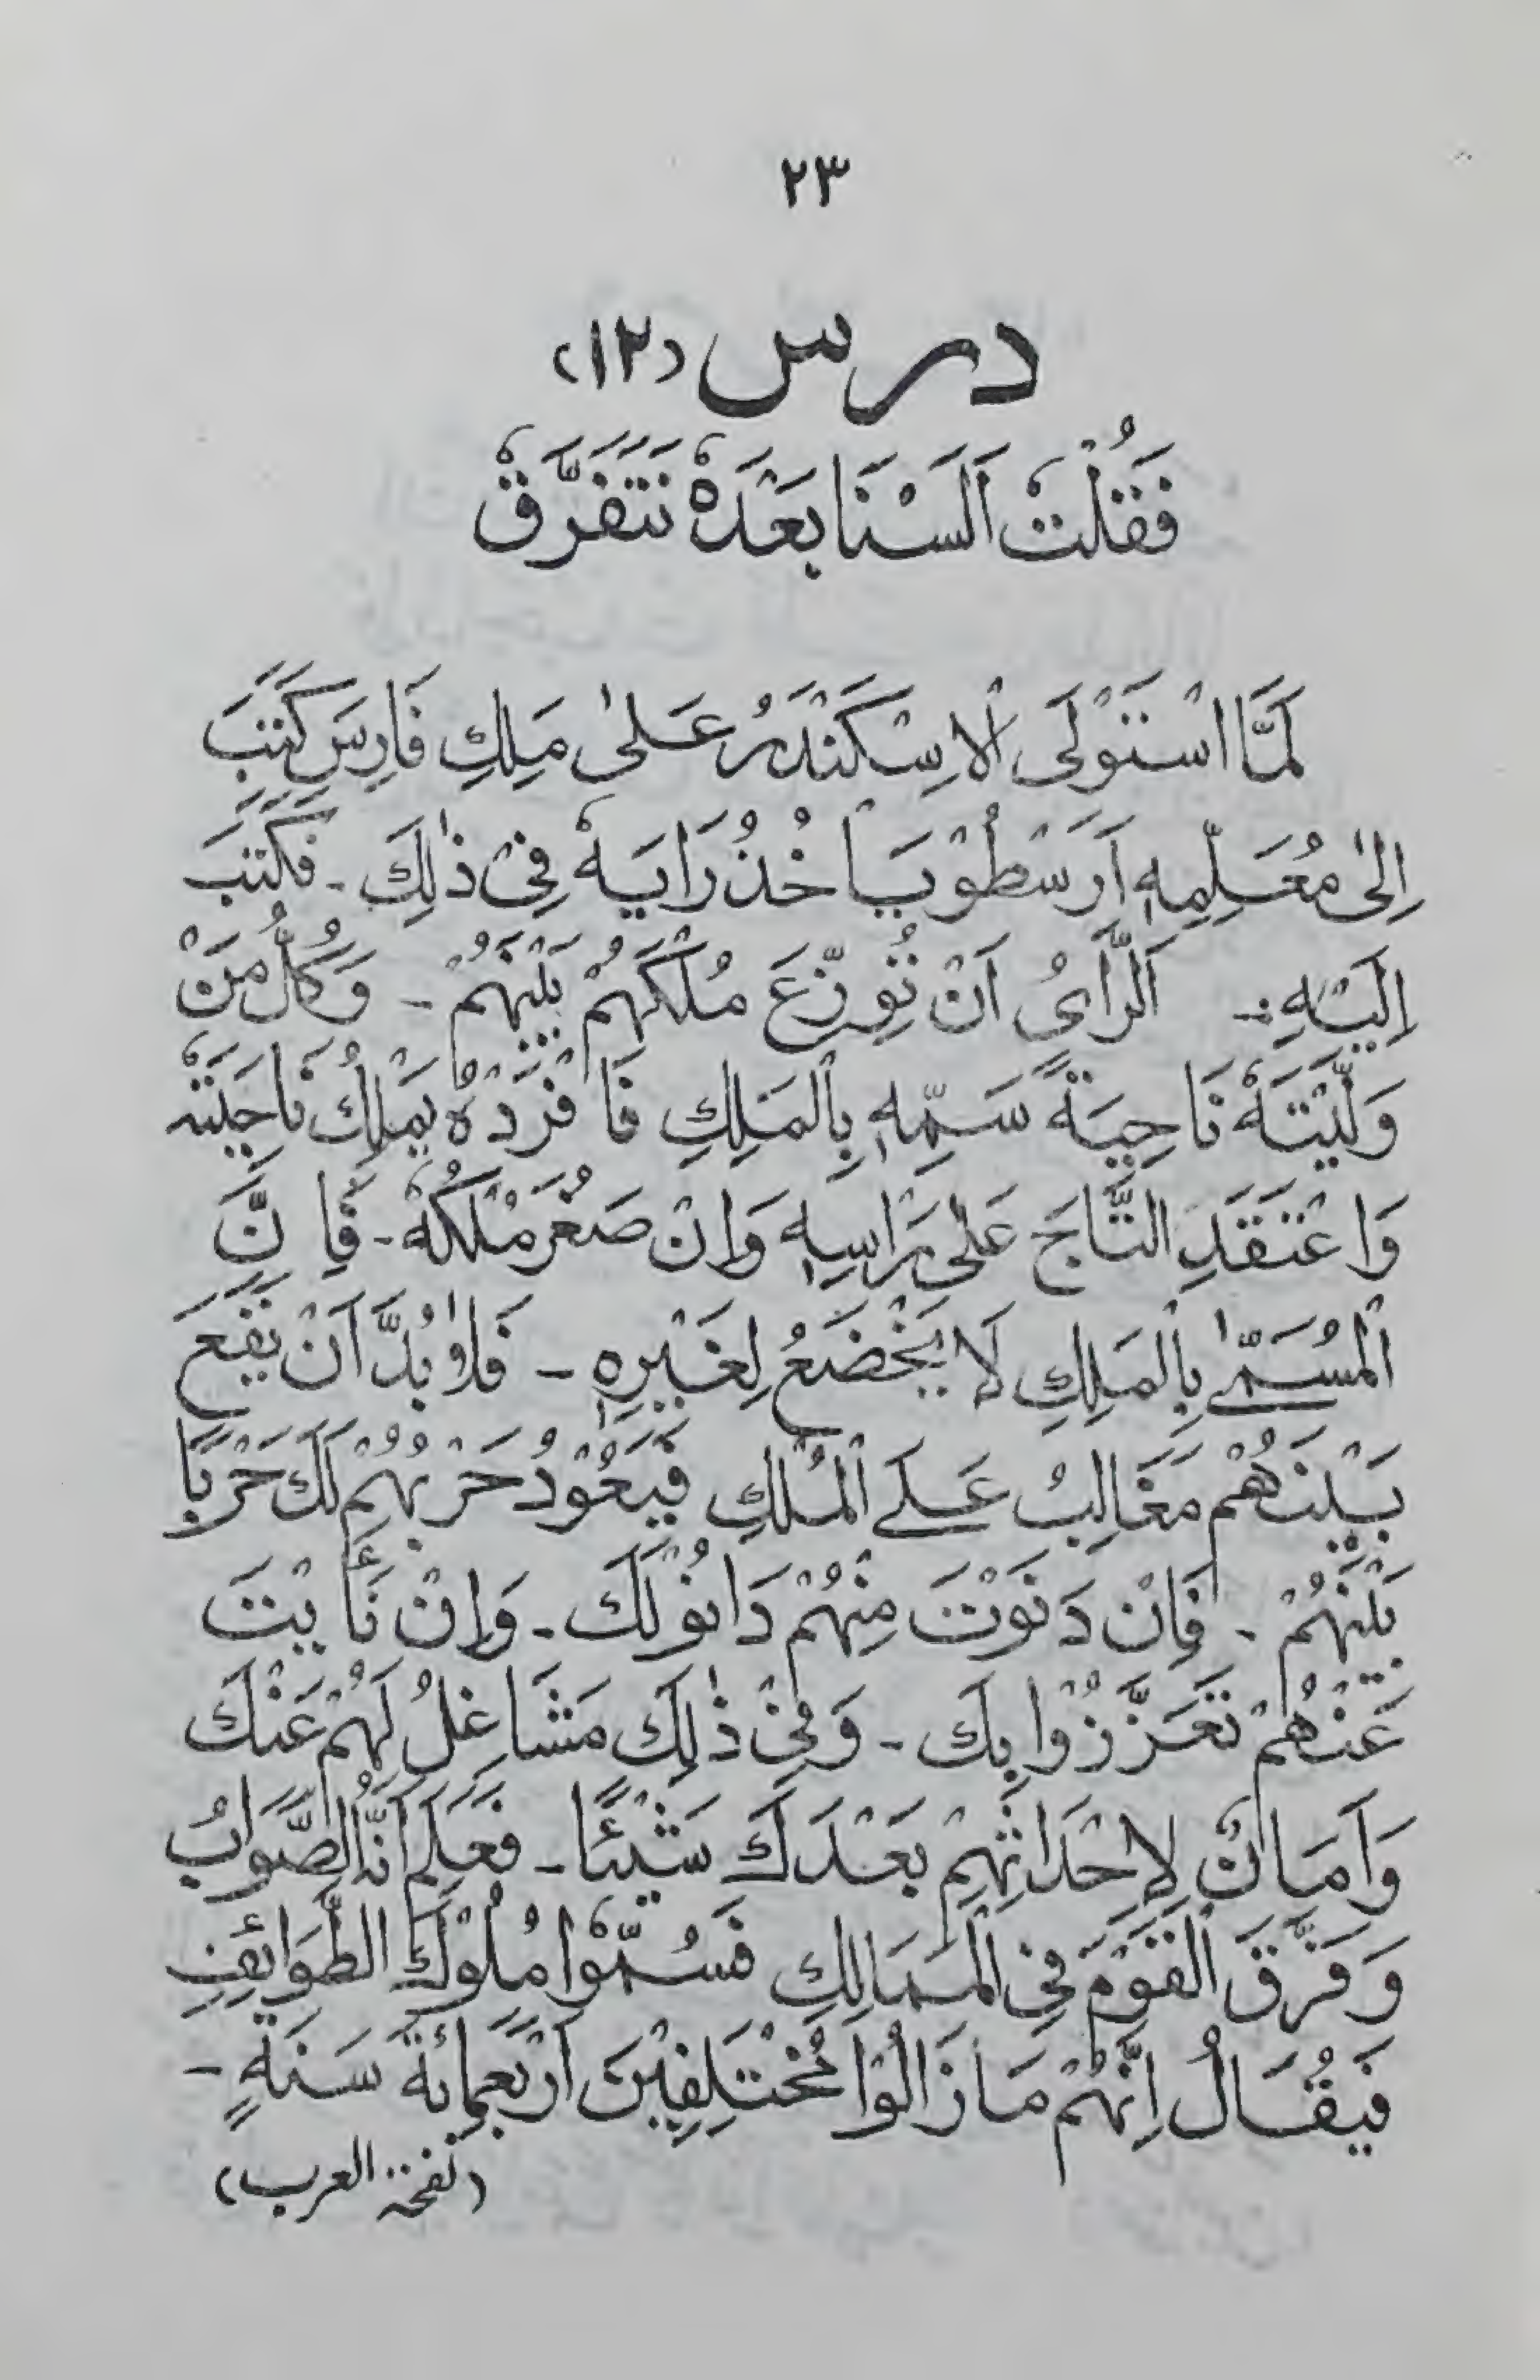 ٢٣
درس (١٢)
فَقُلْتُ اَلَسْنَا بَعْدَهٗ نَتَفَرَّقٗ
لَمَّا اسْتَوْلَى الْاِسْكَنْدَرُ عَلىٰ مَلِكِ فَارِسَ كَتَبَ
اِلىٰ مُعَلِّمِهٖ اَرَسْطُوْ يَاْخُذُ رَايَهٗ فِيْ ذٰلِكَ ۔ فَكَتَبَ
اِلَيْهِ :۔ اَلرَّاىُ اَنْ تُوِزّعَ مُلْكَهُمْ بَيْنَهُمْ ۔ وَكُلُّ مَنْ
وَلَّيْتَهٗ نَاحِيَةً سَمِّهٖ بِالْمَلِكِ فَافْرَدْهُ يَمْلِكُ نَاحِيَتَهٗ
وَاعْتَقَدِ التَّاجَ عَلىٰ رَاْسِهٖ وَاِنْ صَغُرَ مُلْكُهٗ ۔ فَاِنَّ
الْمُسَمّٰے بِالْمَلِكِ لَا يَخْضَعُ لِغَيْرِهٖ ۔ فَلَا بُدَّ اَنْ يَقَعَ
بَيْنَهُمْ مَغَالِبُ عَلَے الْمُلْكِ فَيَعُوْدُ حَرْبُهُمْ لَكَ حَرْبًا
بَيْنَهُمْ ۔ فَاِنْ دَنَوْتَ مِنْهُمْ دَانُوْ لَكَ ۔ وَاِنْ نَأَيْتَ
عَنْهُمْ تَعَزَّزُوْا بِكَ ۔ وَفِيْ ذٰلِكَ مَشَاغِلُ لَهُمْ عَنْكَ
وَاَمَانٌ لِاِحْدَاثِهِمْ بَعْدَكَ شَيْئًا ۔ فَعَلِمَ اَنَّهُ الصَّوَابُ
وَفَرَّقَ الْقَوْمَ فِي الْمَمَالِكِ فَسُمُّوْا مُلُوْكَ الطَّوَائِفِ
فَيُقَالُ اِنَّهُمْ مَا زَالُوْا مُخْتَلِفِيْنَ اَرْبَعَمِائَةَ سَنَةٍ ۔
(نفحۃ العرب)